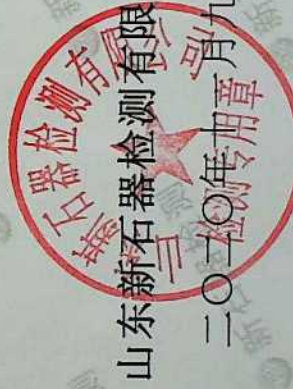 山东新石器检测有限
二〇二〇年十一月九
新石器检测有限公司
检测专用章